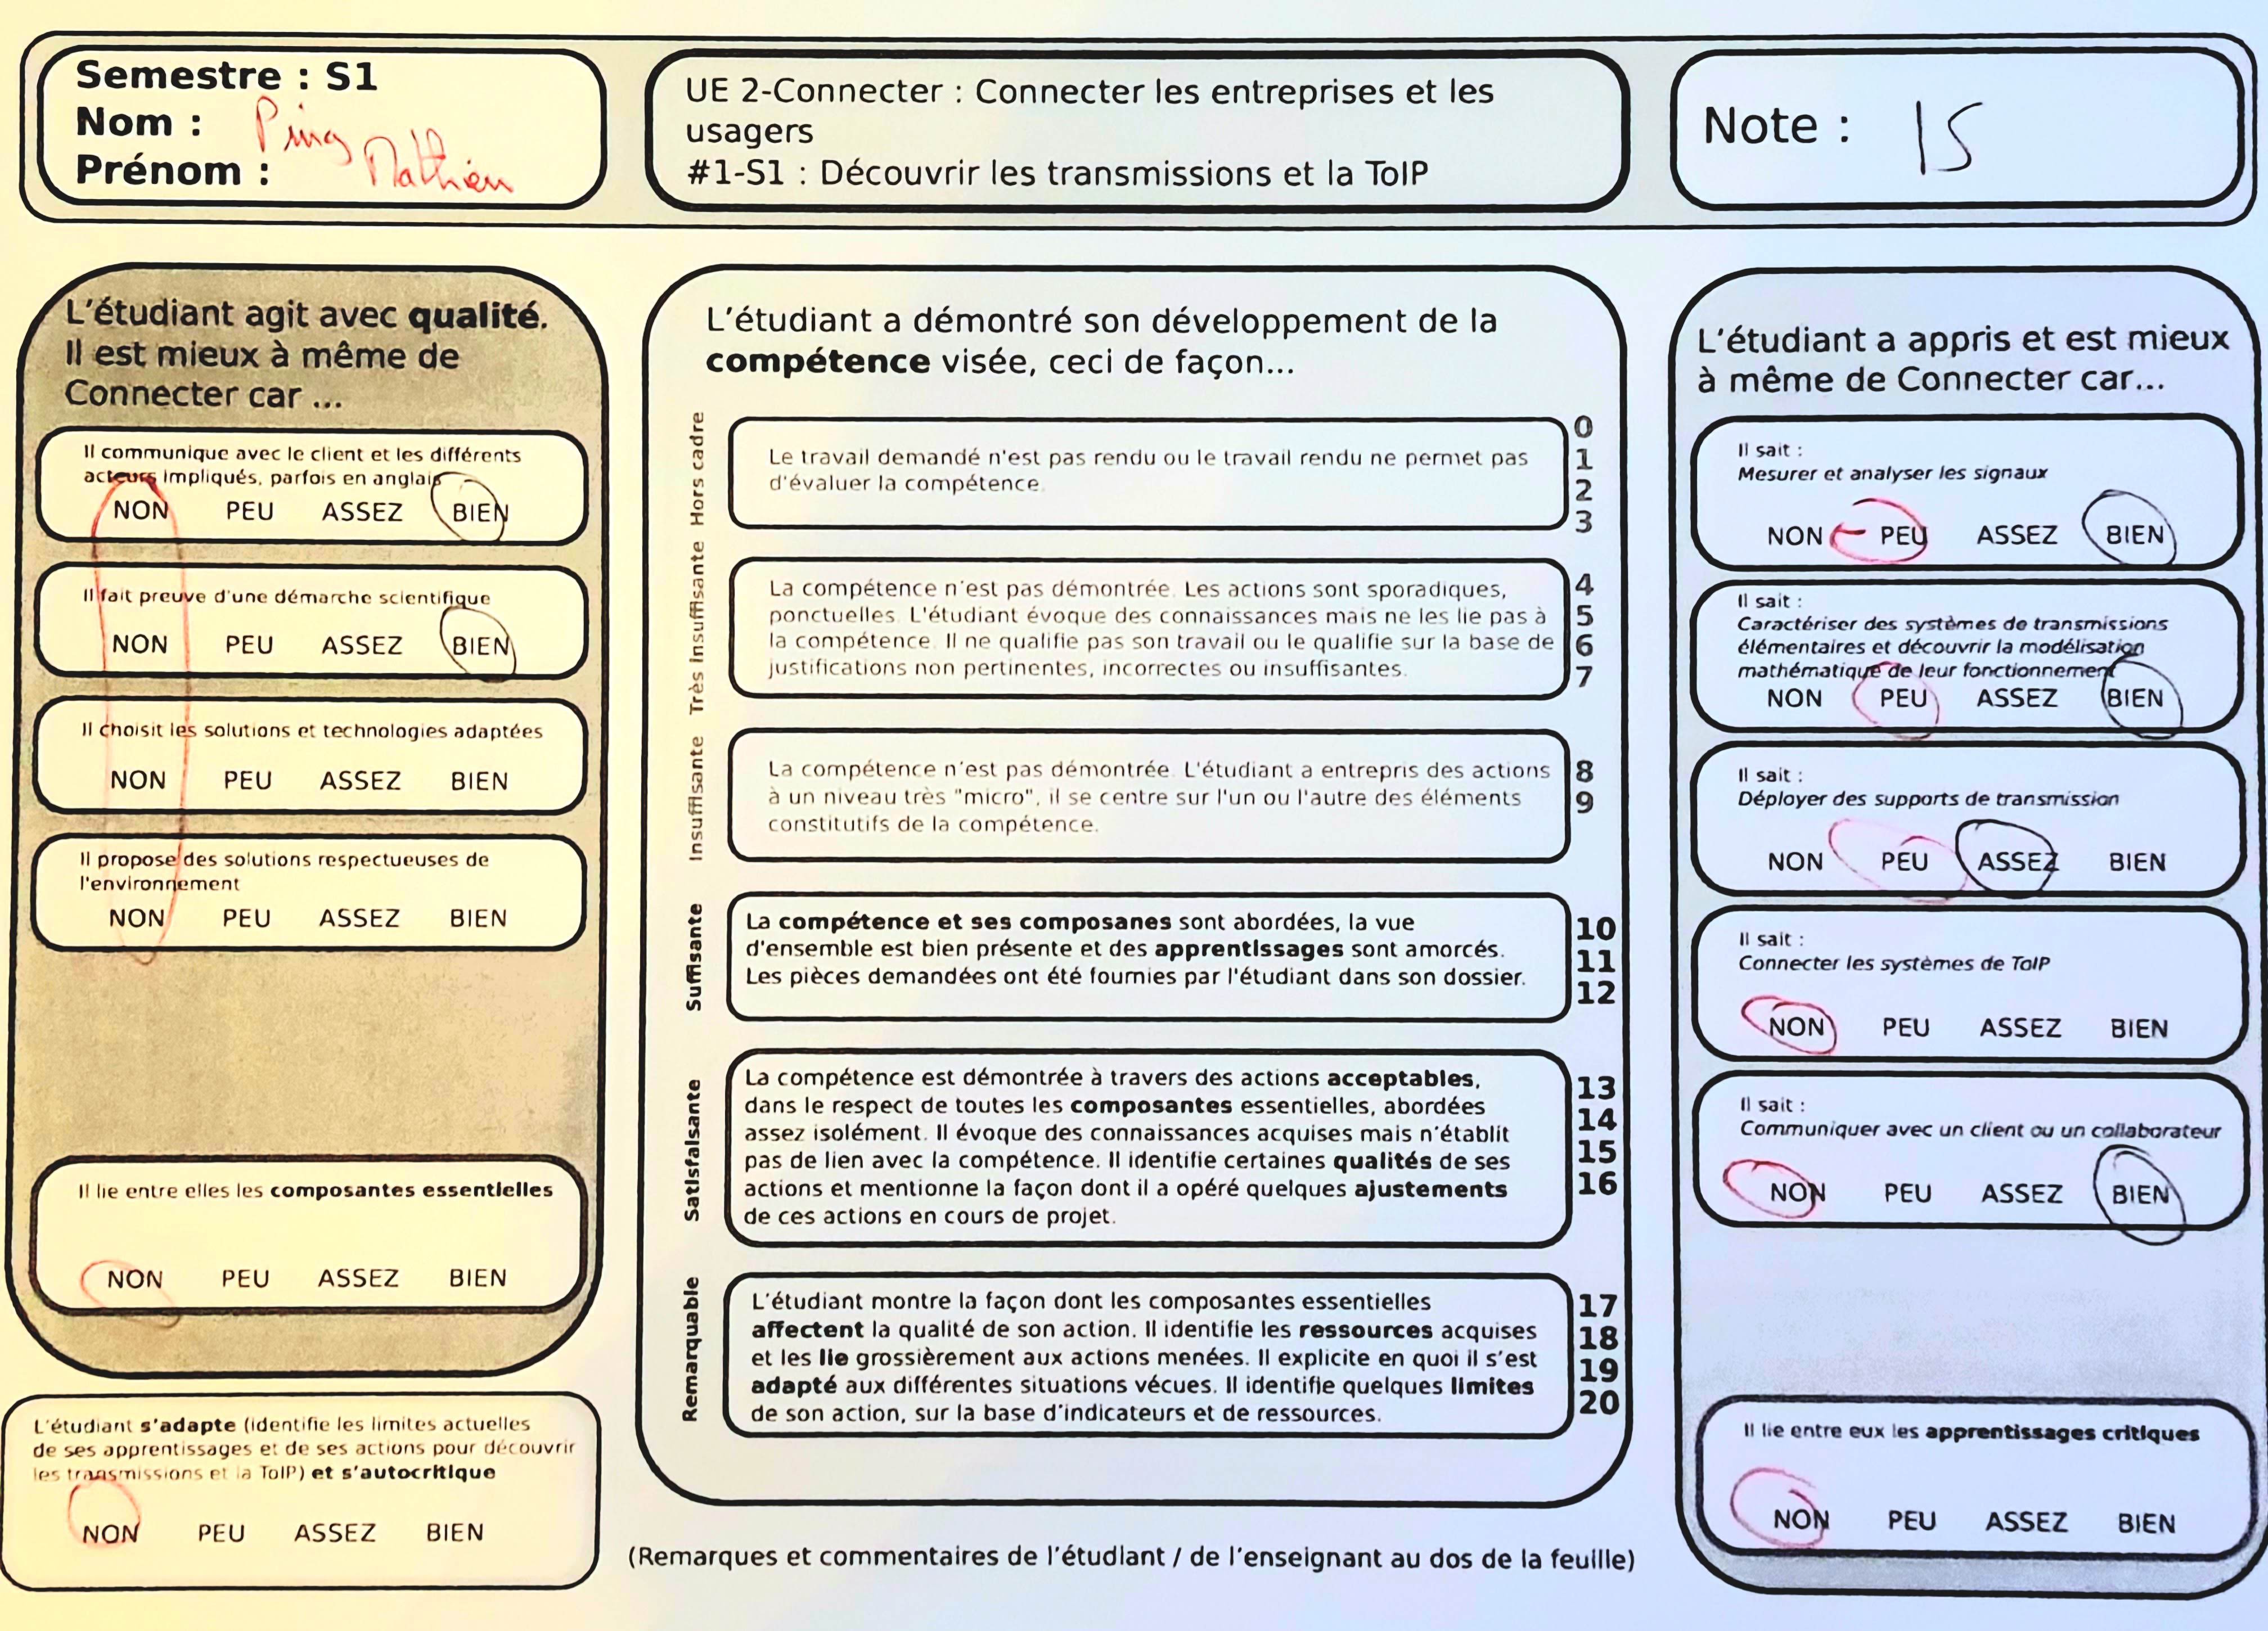 Semestre : S1
Nom : Ping
Prénom : Mathieu
UE 2-Connecter : Connecter les entreprises et les
usagers
#1-S1 : Découvrir les transmissions et la ToIP
Note : 15
L'étudiant agit avec qualité.
Il est mieux à même de
Connecter car ...
Il communique avec le client et les différents
acteurs impliqués, parfois en anglais
NON PEU ASSEZ BIEN
Il fait preuve d'une démarche scientifique
NON PEU ASSEZ BIEN
Il choisit les solutions et technologies adaptées
NON PEU ASSEZ BIEN
Il propose des solutions respectueuses de
l'environnement
NON PEU ASSEZ BIEN
Il lie entre elles les composantes essentielles
NON PEU ASSEZ BIEN
L'étudiant s'adapte (identifie les limites actuelles
de ses apprentissages et de ses actions pour découvrir
les transmissions et la ToIP) et s'autocritique
NON PEU ASSEZ BIEN
L'étudiant a démontré son développement de la
compétence visée, ceci de façon...
Hors cadre
Le travail demandé n'est pas rendu ou le travail rendu ne permet pas
d'évaluer la compétence.
0
1
2
3
Très insuffisante
La compétence n'est pas démontrée. Les actions sont sporadiques,
ponctuelles. L'étudiant évoque des connaissances mais ne les lie pas à
la compétence. Il ne qualifie pas son travail ou le qualifie sur la base de
justifications non pertinentes, incorrectes ou insuffisantes.
4
5
6
7
Insuffisante
La compétence n'est pas démontrée. L'étudiant a entrepris des actions
à un niveau très "micro", il se centre sur l'un ou l'autre des éléments
constitutifs de la compétence.
8
9
Suffisante
La compétence et ses composanes sont abordées, la vue
d'ensemble est bien présente et des apprentissages sont amorcés.
Les pièces demandées ont été fournies par l'étudiant dans son dossier.
10
11
12
Satisfaisante
La compétence est démontrée à travers des actions acceptables,
dans le respect de toutes les composantes essentielles, abordées
assez isolément. Il évoque des connaissances acquises mais n'établit
pas de lien avec la compétence. Il identifie certaines qualités de ses
actions et mentionne la façon dont il a opéré quelques ajustements
de ces actions en cours de projet.
13
14
15
16
Remarquable
L'étudiant montre la façon dont les composantes essentielles
affectent la qualité de son action. Il identifie les ressources acquises
et les lie grossièrement aux actions menées. Il explicite en quoi il s'est
adapté aux différentes situations vécues. Il identifie quelques limites
de son action, sur la base d'indicateurs et de ressources.
17
18
19
20
(Remarques et commentaires de l'étudiant / de l'enseignant au dos de la feuille)
L'étudiant a appris et est mieux
à même de Connecter car...
Il sait :
Mesurer et analyser les signaux
NON PEU ASSEZ BIEN
Il sait :
Caractériser des systèmes de transmissions
élémentaires et découvrir la modélisation
mathématique de leur fonctionnement
NON PEU ASSEZ BIEN
Il sait :
Déployer des supports de transmission
NON PEU ASSEZ BIEN
Il sait :
Connecter les systèmes de ToIP
NON PEU ASSEZ BIEN
Il sait :
Communiquer avec un client ou un collaborateur
NON PEU ASSEZ BIEN
Il lie entre eux les apprentissages critiques
NON PEU ASSEZ BIEN